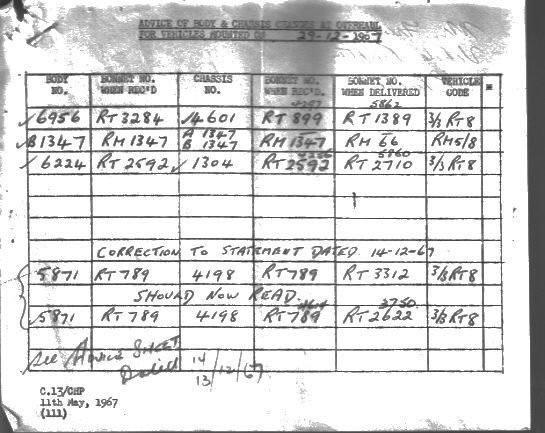 ADVICE OF BODY & CHASSIS CHANGES AT OVERHAUL
FOR VEHICLES MOUNTED ON 29-12-1967
BODY NO. BONNET NO. WHEN REC'D CHASSIS NO. BONNET NO. WHEN REC'D. BONNET NO. WHEN DELIVERED VEHICLE CODE *
5862
6956 RT 3284 4601 RT 899 RT 1389 3/3 RT8
B1347 RM 1347 A 1347 B 1347 RM 1347 RM 66 RM5/8
5860
6224 RT 2592 1304 RT 2592 RT 2710 3/3 RT8
CORRECTION TO STATEMENT DATED 14-12-67
5871 RT 789 4198 RT 789 RT 3312 3/3 RT8
SHOULD NOW READ
3750
5871 RT 789 4198 RT 789 RT 2622 3/3 RT8
See Advice Sheet
Dated 14 13/12/67
C.13/CHP
11th May, 1967
(111)